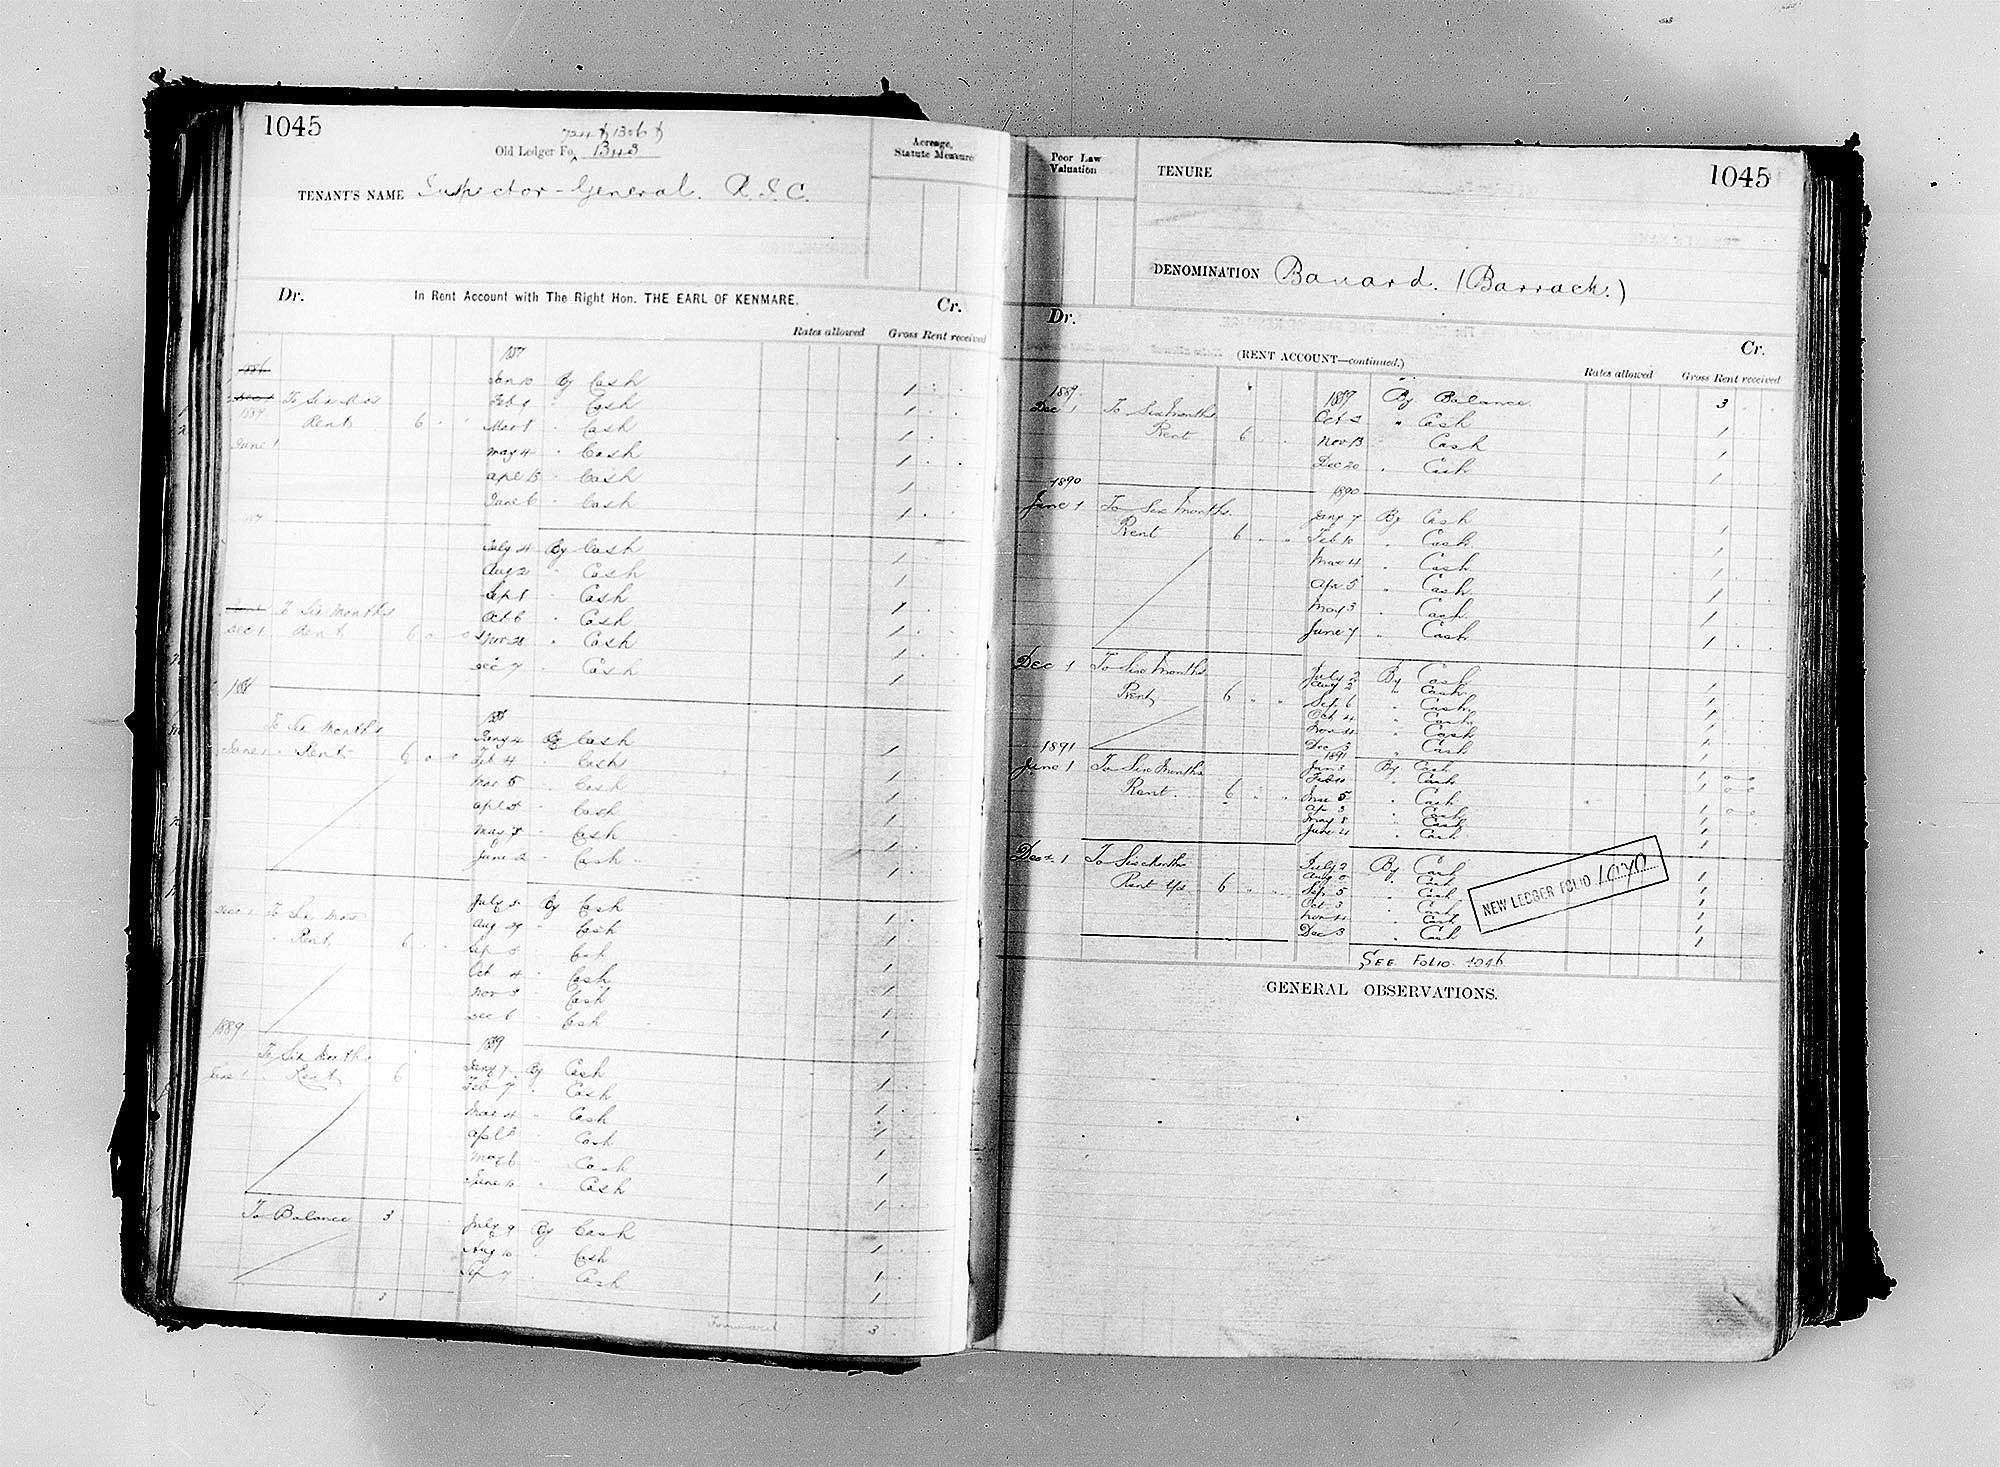 1045
Old Ledger Fo.
TENANT'S NAME Inspector-General. R.I.C.
Acreage, Statute Measure
Dr. In Rent Account with The Right Hon. THE EARL OF KENMARE. Cr.
Rates allowed Gross Rent received
1887
Jan 10 By Cash 1
To Six Mos Feb 1 " Cash 1
Rent 6 Mar 1 " Cash 1
June 1 May 4 " Cash 1
Apl 13 " Cash 1
June 6 " Cash 1
July 4 By Cash 1
Aug 2 " Cash 1
Sept 1 " Cash 1
To Six Months Oct 6 " Cash 1
Dec 1 Rent 6 0 0 Nov 28 " Cash 1
Dec 7 " Cash 1
To Six Months Jany 4 By Cash 1
June 1 Rent 6 0 0 Feb 4 " Cash 1
Mar 5 " Cash 1
Apl 5 " Cash 1
May 8 " Cash 1
June 2 " Cash 1
July 2 By Cash 1
Dec 1 To Six Mos Aug 29 " Cash 1
Rent 6 Sep 5 " Cash 1
Oct 4 " Cash 1
Nov 3 " Cash 1
Dec 6 " Cash 1
1889 1889
To Six Months Jany 7 By Cash 1
June 1 Rent 6 Feb 7 " Cash 1
Mar 4 " Cash 1
Apl 8 " Cash 1
May 6 " Cash 1
June 10 " Cash 1
To Balance 3 July 9 By Cash 1
Aug 10 " Cash 1
Sep 7 " Cash 1
3 Forward 3
Poor Law Valuation
TENURE
1045
DENOMINATION Banard. (Barrack.)
Dr. (RENT ACCOUNT—continued.) Cr.
Rates allowed Gross Rent received
1889 1889 By Balance 3
Dec 1 To Six Months Oct 2 " Cash 1
Rent 6 Nov 13 Cash 1
Dec 20 " Cash 1
1890 1890
June 1 To Six Months Jany 7 By Cash 1
Rent 6 Feb 10 " Cash 1
Mar 4 " Cash 1
Apr 5 " Cash 1
May 3 " Cash 1
June 7 " Cash 1
Dec 1 To Six Months July 2 By Cash 1
Aug 2 " Cash 1
Rent 6 Sep 6 " Cash 1
Oct 4 " Cash 1
Nov 4 " Cash 1
Dec 3 " Cash 1
1891 1891
June 1 To Six Months Jan 3 By Cash 1 0 0
Feb 10 " Cash 1 0 0
Rent 6 Mar 5 " Cash 1 0 0
Ap 3 " Cash 1
May 8 " Cash 1
June 4 " Cash 1
Dec 1 To Six Months July 2 By Cash 1
Aug 5 " Cash 1
Rent 6 Sep 5 " Cash 1
Oct 3 " Cash 1
Nov 4 " Cash 1
Dec 3 " Cash 1
NEW LEDGER FOLIO
SEE FOLIO 1046
GENERAL OBSERVATIONS.